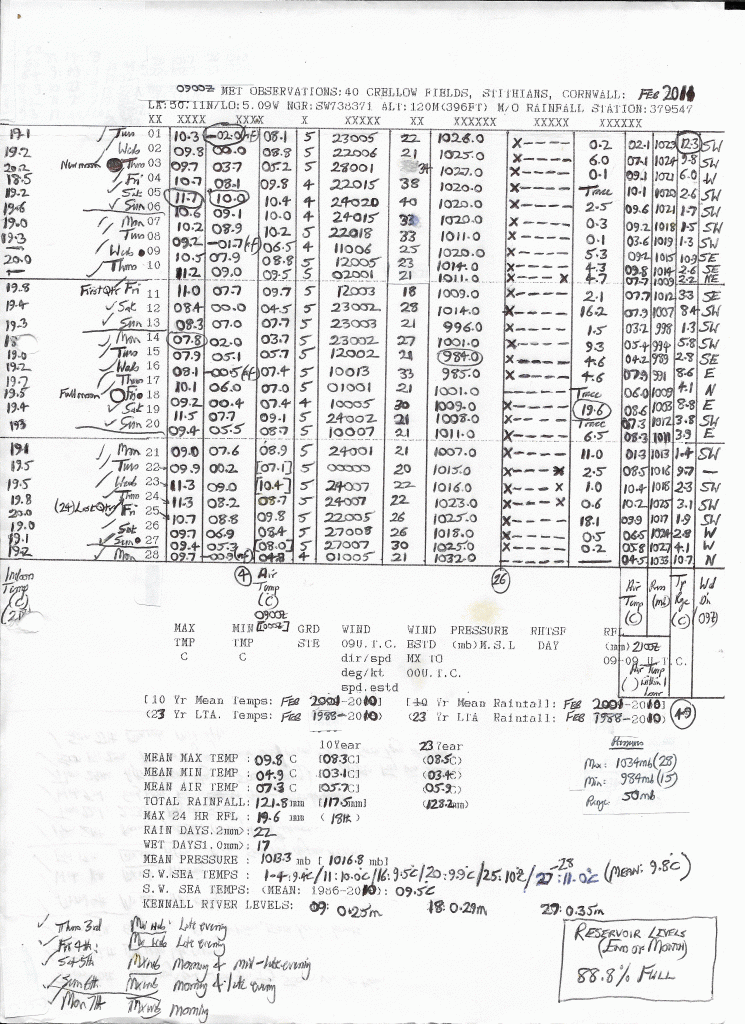 0900Z MET OBSERVATIONS:40 CRELLOW FIELDS, STITHIANS, CORNWALL: FEB 2011
LA:50.11N/LO:5.09W NGR:SW738371 ALT:120M(396FT) M/O RAINFALL STATION:379547
XX XXXX XXXX X XXXXX XX XXXXXX XXXXX XXXXXX
19.1 Tues 01 10.3 -02.0 08.1 5 23005 22 1028.0 X---- 0.2 02.1 1023 12.3 SW
19.2 Weds 02 09.8 00.0 08.8 5 22006 21 1025.0 X---- 6.0 07.1 1024 9.8 SW
20.2 New moon Thurs 03 09.7 03.7 05.2 5 28001 34 1027.0 X---- 0.1 09.1 1021 6.0 W
18.5 Fri 04 10.7 08.1 09.8 4 22015 38 1020.0 X---- Trace 10.1 1020 2.6 SW
19.2 Sat 05 11.7 10.0 10.4 4 24020 40 1020.0 X---- 0.3 09.6 1021 1.7 SW
19.6 Sun 06 10.6 09.1 10.0 4 24015 33 1020.0 X---- 0.1 09.2 1018 1.5 SW
19.0 Mon 07 10.2 08.9 10.2 5 22018 33 1011.0 X---- 5.3 03.6 1019 1.3 SW
19.3 Tues 08 09.2 -01.7 06.5 4 11006 25 1020.0 X----
20.0 Weds 09 10.5 07.9 08.8 5 12005 23 1014.0 X---- 4.3
Thurs 10 11.2 09.0 09.5 5 02001 21 1011.0 X---- X 4.7
19.8 First Qtr Fri 11 11.0 07.7 09.7 5 12003 18 1009.0 X---- 2.1 07.7 1012 3.3 SE
19.4 Sat 12 08.4 00.0 04.5 5 23002 28 1014.0 X---- 16.2 07.9 1007 8.4 SW
19.3 Sun 13 08.3 07.0 07.7 5 23003 21 996.0 X---- 1.5 03.2 998 1.3 SW
Mon 14 07.8 02.0 03.7 5 23002 27 1001.0 X---- 9.3 05.4 994 5.8 SW
19.0 Tues 15 07.9 05.1 05.7 5 12002 21 984.0 X---- 4.6 04.2 989 2.8 SE
19.2 Weds 16 08.1 -00.5 07.4 5 10013 33 985.0 X---- 4.6 07.9 991 8.6 E
19.7 Thurs 17 10.1 06.0 07.0 5 01001 21 1001.0 ---- Trace 06.0 1009 4.1 N
19.5 Full moon Fri 18 09.2 00.4 07.4 4 10005 30 1009.0 X---- 19.6 08.6 1003 8.8 E
19.4 Sat 19 11.5 07.7 09.1 5 24002 21 1008.0 X---- Trace 07.3 1012 3.8 SW
19.3 Sun 20 09.4 05.5 08.7 5 10007 21 1011.0 X---- 6.5 08.3 1011 3.9 E
19.1 Mon 21 09.0 07.6 08.9 5 24001 21 1007.0 X---- 11.0 01.3 1013 1.4 SW
19.5 Tues 22 09.9 00.2 [07.1] 5 00000 20 1015.0 X---- X 2.5 08.5 1016 9.7 —
19.5 Weds 23 11.3 09.0 [10.4] 5 24007 22 1016.0 X---- X 1.0 10.4 1018 2.3 SW
19.8 Thurs 24 11.3 08.2 08.7 5 24007 22 1023.0 X---- X 0.6 10.2 1025 3.1 SW
20.0 (24) Last Qtr Fri 25 10.7 08.8 09.8 5 22005 26 1025.0 X---- 18.1 09.9 1017 1.9 SW
19.0 Sat 26 09.7 06.9 08.4 5 27008 26 1018.0 X---- 0.5 06.5 1024 2.8 W
19.1 Sun 27 09.4 05.3 [08.0] 5 27007 30 1025.0 X---- 0.2 05.8 1027 4.1 W
19.2 Mon 28 09.7 -00.9 04.8 4 01005 21 1032.0 ---- — 04.5 1033 10.7 N
Indoor Temp (C) 4 Air Temp (C) 0900Z 26 Air Temp (C) Pres (mb) Tp Rge (C) Wd Dir (09Z)
MAX MIN [0900Z] GRD WIND WIND PRESSURE RHTSF RFL
TMP TMP STE 09U.T.C. ESTD (mb)M.S.L DAY (mm) 2100Z
C C dir/spd MX TO 09-09 U.T.C.
deg/kt 00U.T.C.
spd.estd
[10 Yr Mean Temps: FEB 2001-2010] [10 Yr Mean Rainfall: FEB 2001-2010]
(23 Yr LTA. Temps: FEB 1988-2010) (23 Yr LTA Rainfall: FEB 1988-2010) 4.9
10Year 23 Year
MEAN MAX TEMP : 09.8 C [08.3C] (08.5C)
MEAN MIN TEMP : 04.9 C [03.1C] (03.4C)
MEAN AIR TEMP : 07.3 C [05.7C] (05.9C)
TOTAL RAINFALL: 121.8mm [117.5mm] (128.2mm)
MAX 24 HR RFL : 19.6 mm (18th)
RAIN DAYS.2mm>: 22
WET DAYS1.0mm>: 17
MEAN PRESSURE : 1013.3 mb [1016.8 mb]
Pressures
Max: 1034mb (28)
Min: 984mb (15)
Range: 50mb
S.W.SEA TEMPS : 1-4:9.4°C/11:10.0°C/16:9.5°C/20:9.9°C/25:10°C/27-28:11.0°C (MEAN: 9.8°C)
S.W. SEA TEMPS: (MEAN: 1986-2010): 09.5C
KENNALL RIVER LEVELS: 09: 0.25m 18: 0.29m 27: 0.35m
Thurs 3rd Late evening
Fri 4th: Late evening
Sat 5th morning & mid-late evening
Sun 6th morning & late evening
Mon 7th morning
RESERVOIR LEVELS
(END OF MONTH)
88.8% FULL